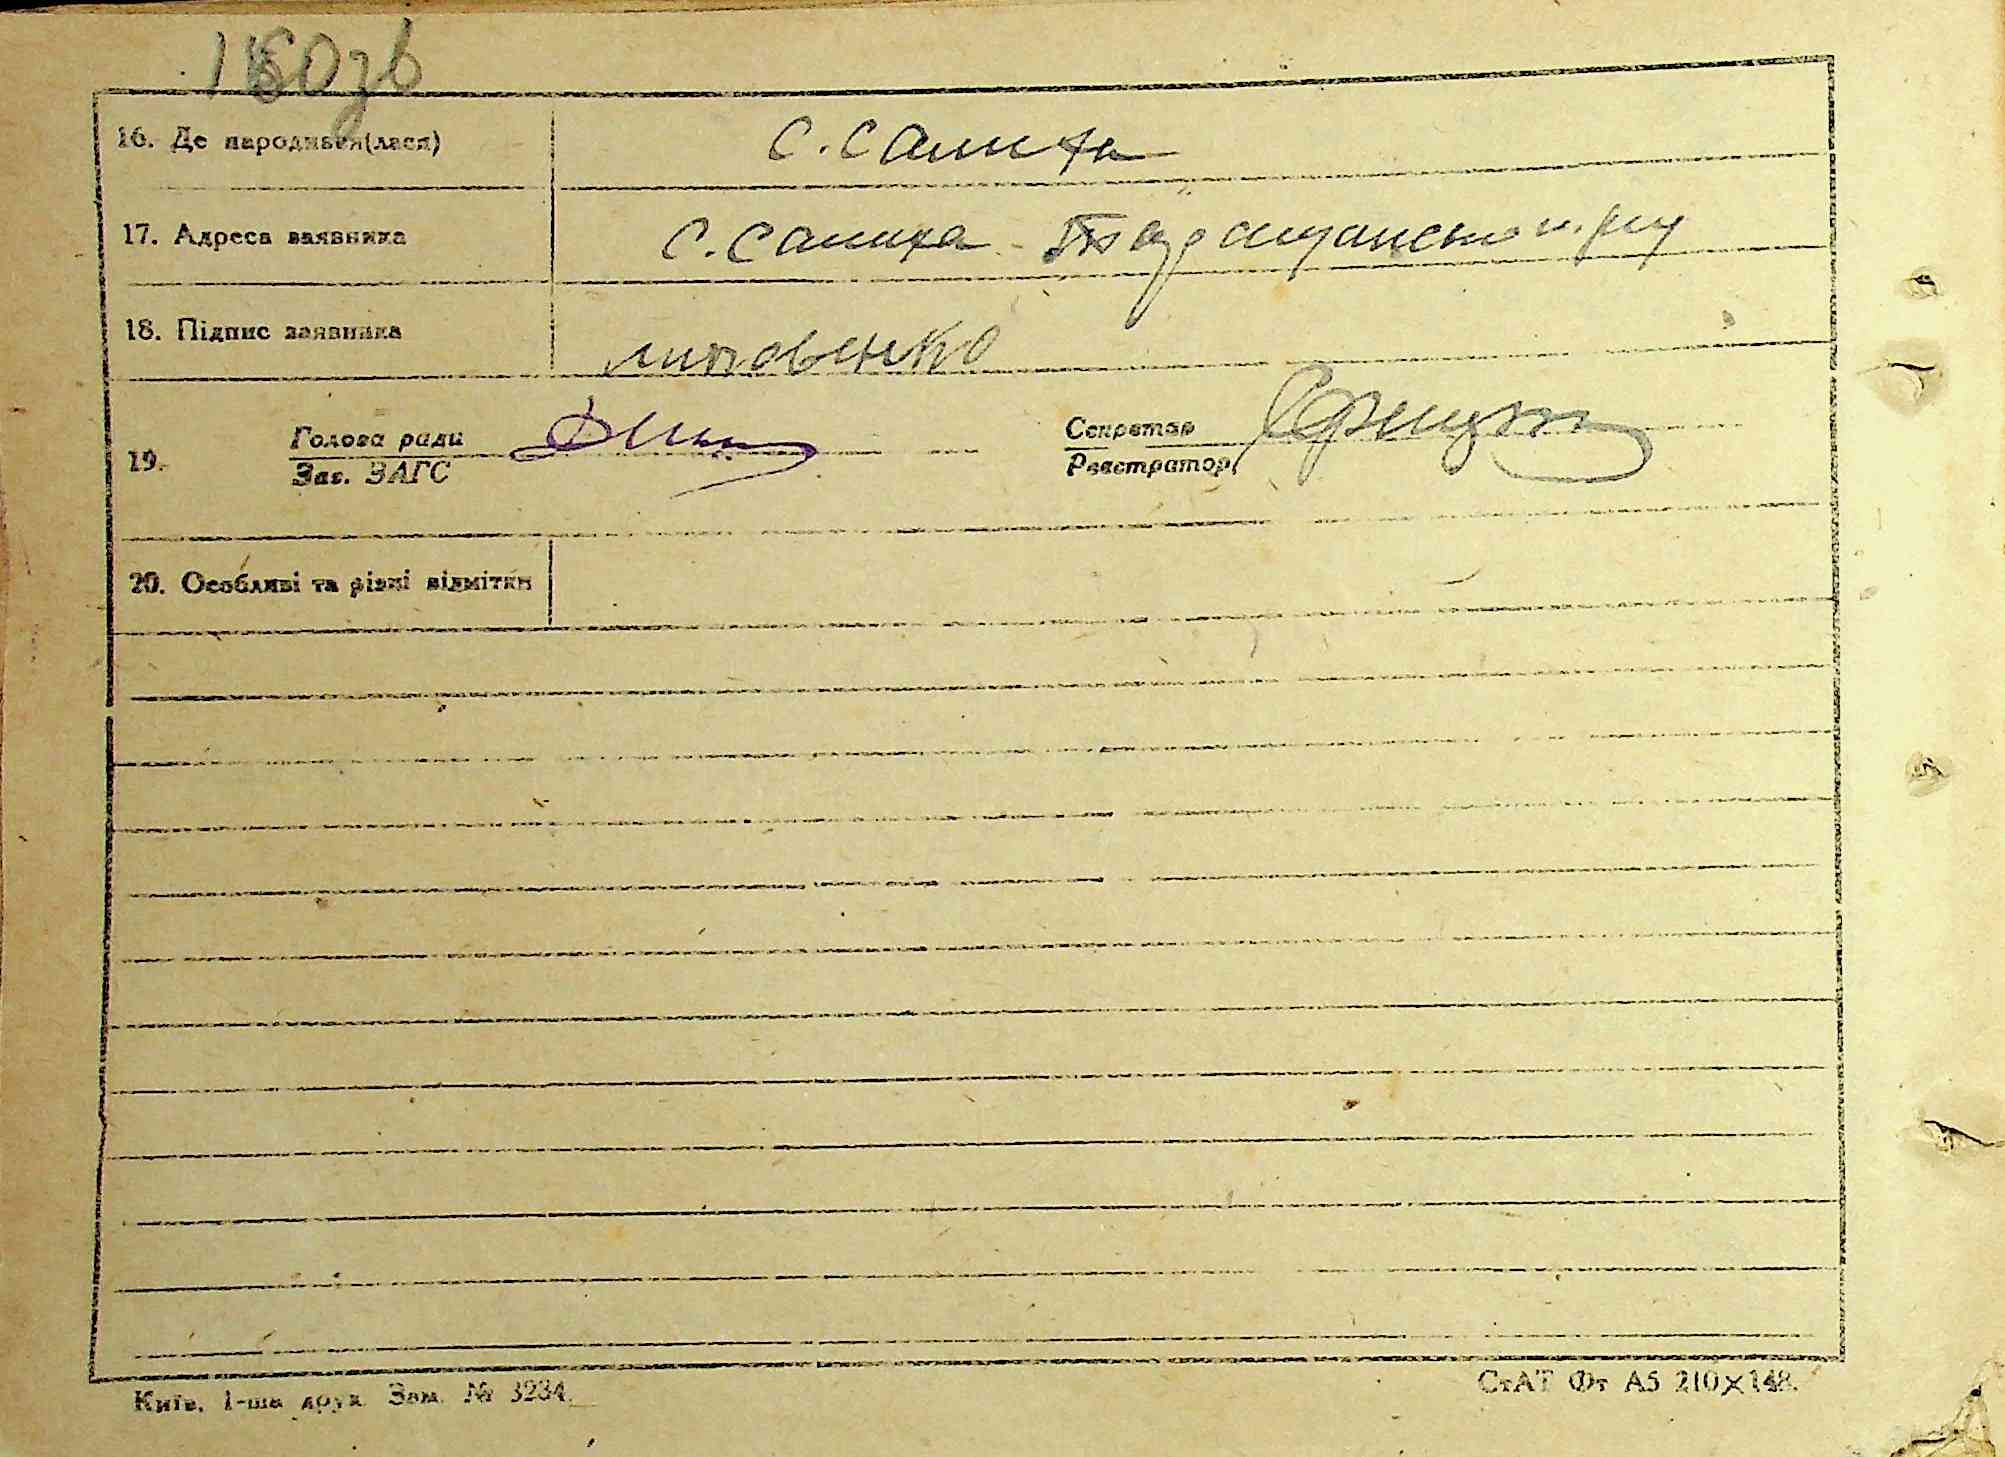 160зв
16. Де народився(лася) с. Салиха
17. Адреса заявника с. Салиха Таращанского р-ну
18. Підпис заявника Липовенко
19. Голова ради Секретар
Зав. ЗАГС Реєстратор
20. Особливі та різні відмітки
Київ. 1-ша друк. Зам. № 3234. СтАТ Фт А5 210×148.